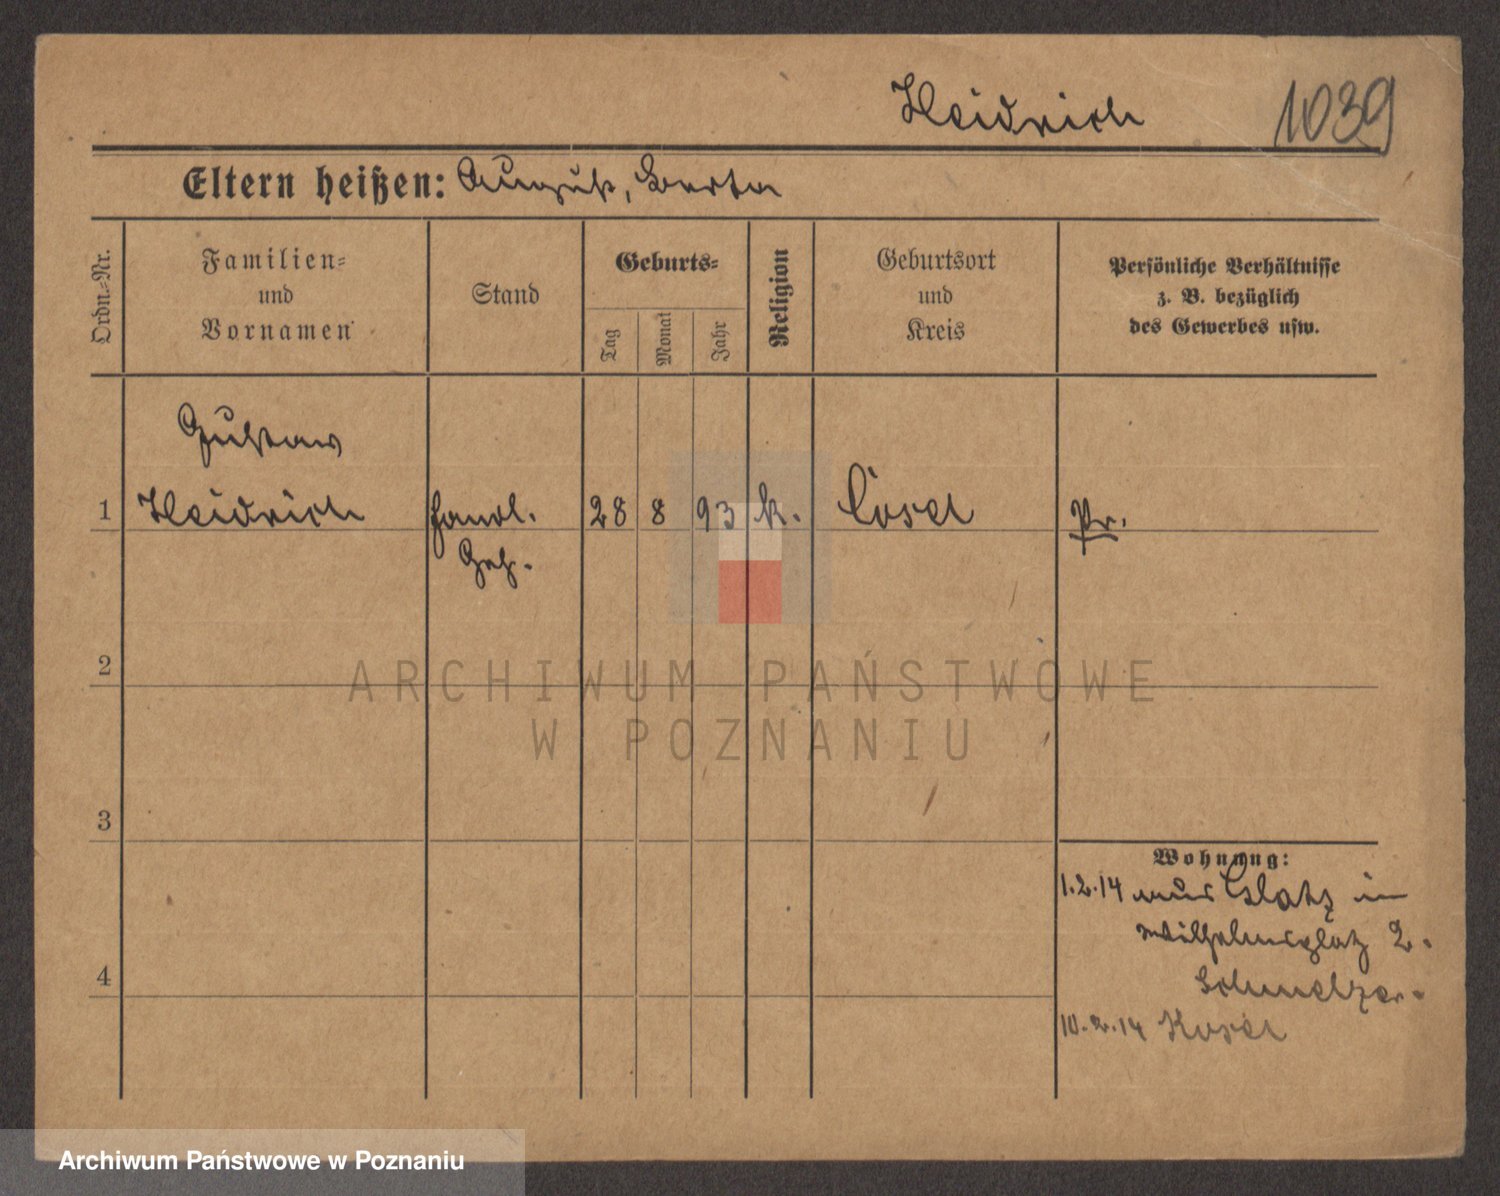 Heidrich 1039
Eltern heißen: August, Berta
Ordn.-Nr.
Familien-
und
Vornamen
Stand
Geburts-
Tag
Monat
Jahr
Religion
Geburtsort
und
Kreis
Persönliche Verhältnisse
z. B. bezüglich
des Gewerbes usw.
Gustav
1 Heidrich Handl. 28 8 93 k. Cosel Pr.
Geh.
2
3
4
Wohnung:
1.2.14 aus Glatz in
Wilhelmsplatz 2.
Schmelzer.
10.2.14 Kosel
ARCHIWUM PAŃSTWOWE
W POZNANIU
Archiwum Państwowe w Poznaniu